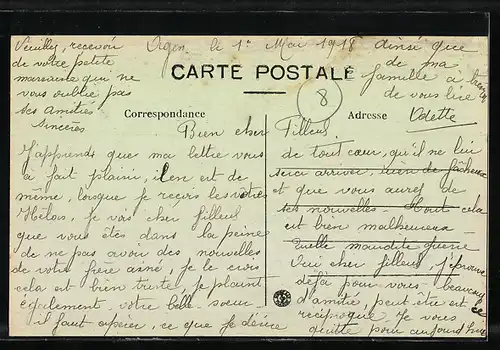 Agen, le 1er Mai 1918
CARTE POSTALE
Correspondance
Adresse
8
Bien cher Filleul
J'apprends que ma lettre vous
a fait plaisir, il en est de
même, lorsque je reçois les vôtres
Hélas, je vois cher filleul
que vous êtes dans la peine
de ne pas avoir des nouvelles
de votre frère ainé, je le crois
cela est bien triste, je plaint
également votre belle soeur
il faut espérer, ce que je désire
de tout cœur, qu'il ne lui
sera arriver, rien de fâcheux
et que vous aurez de
ses nouvelles - Tout cela
est bien malheureux
Quelle maudite guerre
Oui cher filleul, j'éprouve
déjà pour vous beaucoup
d'amitié, peut être est ce
réciproque. Je vous
quitte pour aujourd'hui
ainsi que
de ma
famille à
de vous lire
Odette
Veuillez, recevoir
de votre petite
marraine qui ne
vous oublie pas
ses amitiés
sincères